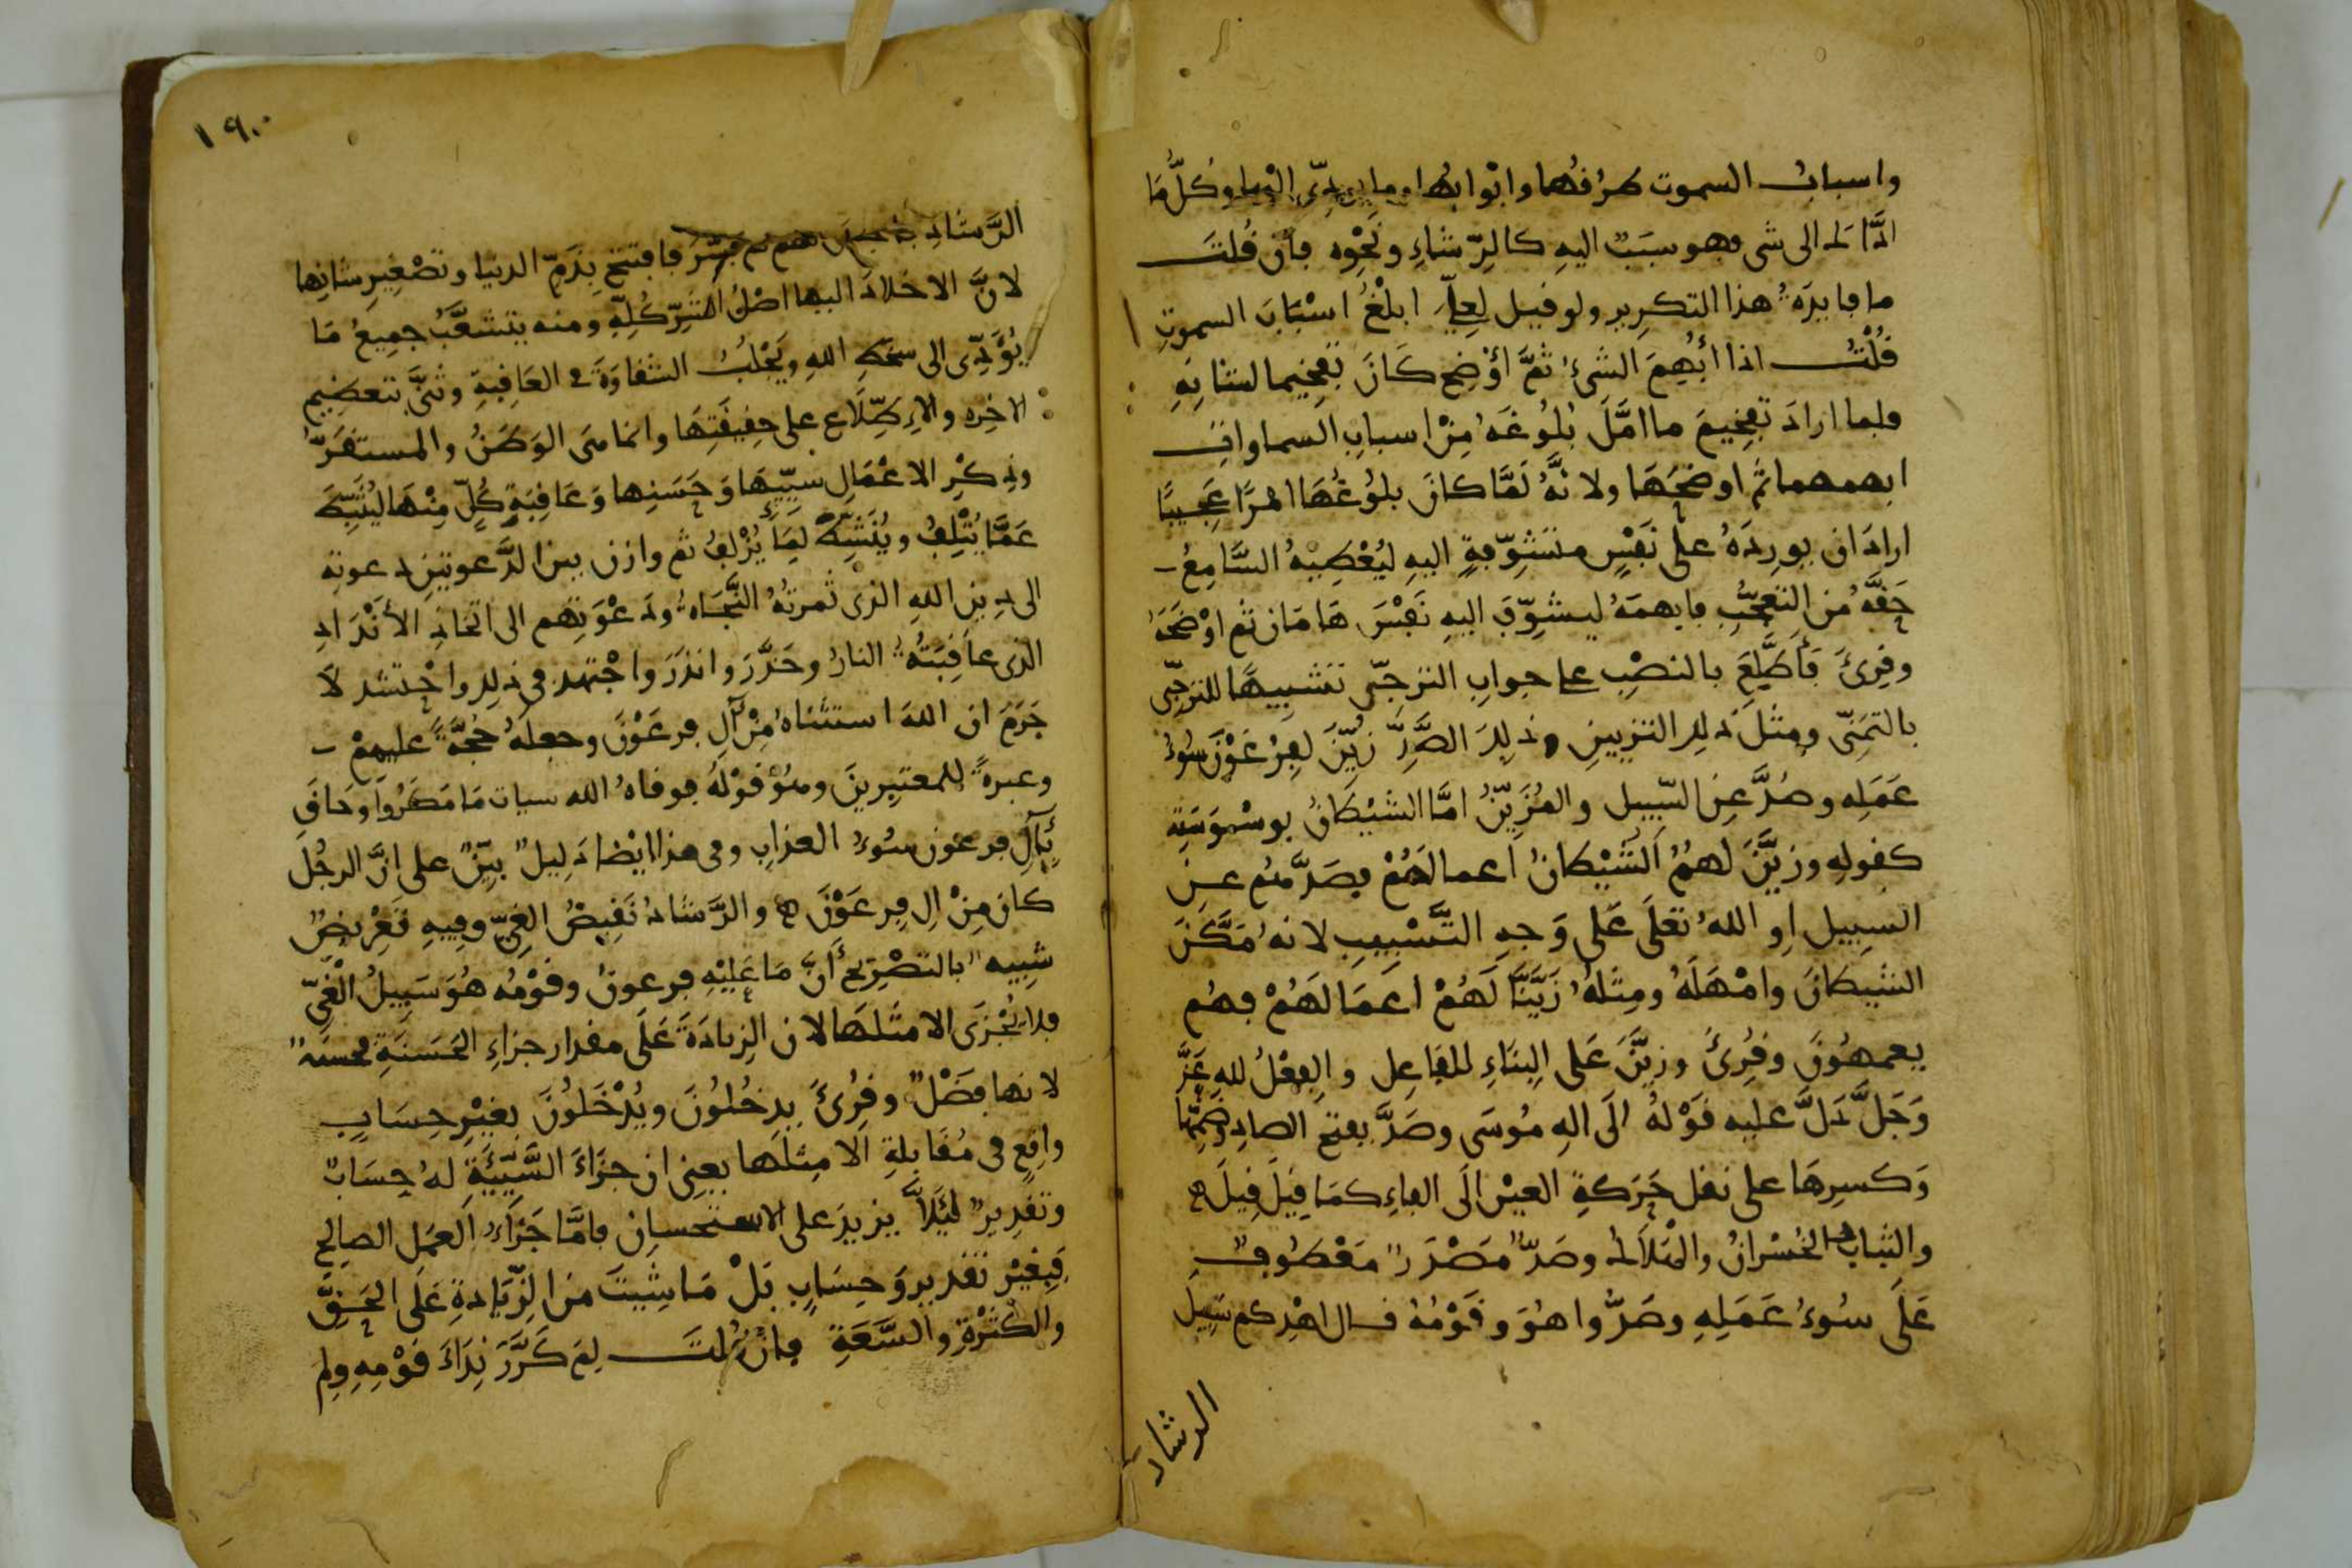 واسباب السموت طرقها وابوابها وما يودى اليها وكل ما
اداك الى شى فهو سبب اليه كالرشاء ونحوه فان قلت
ما فايدة هذا التكرير ولو قيل لعلى ابلغ اسباب السموت
قلت اذا أبهم الشىء ثم أوضح كان تفخيما لشانه
فلما اراد تفخيم ما امل بلوغه من اسباب السماوات
ابهمهما ثم اوضحها ولانه لما كان بلوغها امرا عجيبا
اراد ان يورده على نفس متشوفة اليه ليعطيه السامع
حقه من التعجب فابهمه ليشوف اليه نفس هامان ثم اوضحه
وقرئ فأطلع بالنصب على جواب الترجى تشبيها للترجى
بالتمنى ومثل ذلك التزيين وذلك الصد زين لفرعون سوء
عمله وصد عن السبيل والمزين اما الشيطان بوسوسته
كقوله وزين لهم الشيطان اعمالهم فصدهم عن
السبيل او الله تعلى على وجه التسبيب لانه مكن
الشيطان وامهله ومثله زينا لهم اعمالهم فهم
يعمهون وقرئ وزين على البناء للفاعل والفعل لله عز
وجل دل عليه قوله الى اله موسى وصد بفتح الصاد وضمها
وكسرها على نقل حركة العين الى الفاء كما قيل قيل ه
والتباب الخسران والهلاك وصد مصدر معطوف
على سوء عمله وصدوا هو وقومه قال اهدكم سبيل
الرشاد
١٩٠
الرشاد لهم ثم فسر فافتتح بذم الدنيا وتصغير شانها
لان الاخلاد اليها اصل الشر كله ومنه يتشعب جميع ما
يؤدى الى سخط الله ويجلب الشقاوة فى العاقبة وثنى بتعظيم
الاخره والاطلاع على حقيقتها وانها هى الوطن والمستقر
وذكر الاعمال سيئها وحسنها وعاقبة كل منها ليثبط
عما يتلف وينشط لما يزلف ثم وازن بين الدعوتين دعوته
الى دين الله الذى ثمرته النجاه ودعوتهم الى اتخاذ الأنداد
الذى عاقبته النار وحذر وانذر واجتهد فى ذلك واحتشد لا
جرم ان الله استثناه من آل فرعون وجعله حجة عليهم
وعبرة للمعتبرين وهو قوله فوقاه الله سيات ما مكروا وحاق
بآل فرعون سوء العذاب وفى هذا ايضا دليل بين على ان الرجل
كان من ال فرعون ه والرشاد نقيض الغى وفيه تعريض
شبيه بالتصريح أن ما عليه فرعون وقومه هو سبيل الغى
فلا يجزى الا مثلها لان الزيادة على مقدار جزاء الحسنة محسنة
لانها فضل وقرئ يدخلون ويدخلون بغير حساب
واقع فى مقابلة الا مثلها يعنى ان جزاء السيئة له حساب
وتقدير لئلا يزيد على الاستحسان فاما جزاء العمل الصالح
فبغير تقدير وحساب بل ما شيت من الزيادة على الحق
والكثرة والسعة فان قلت لم كرر نداء قومه ولم